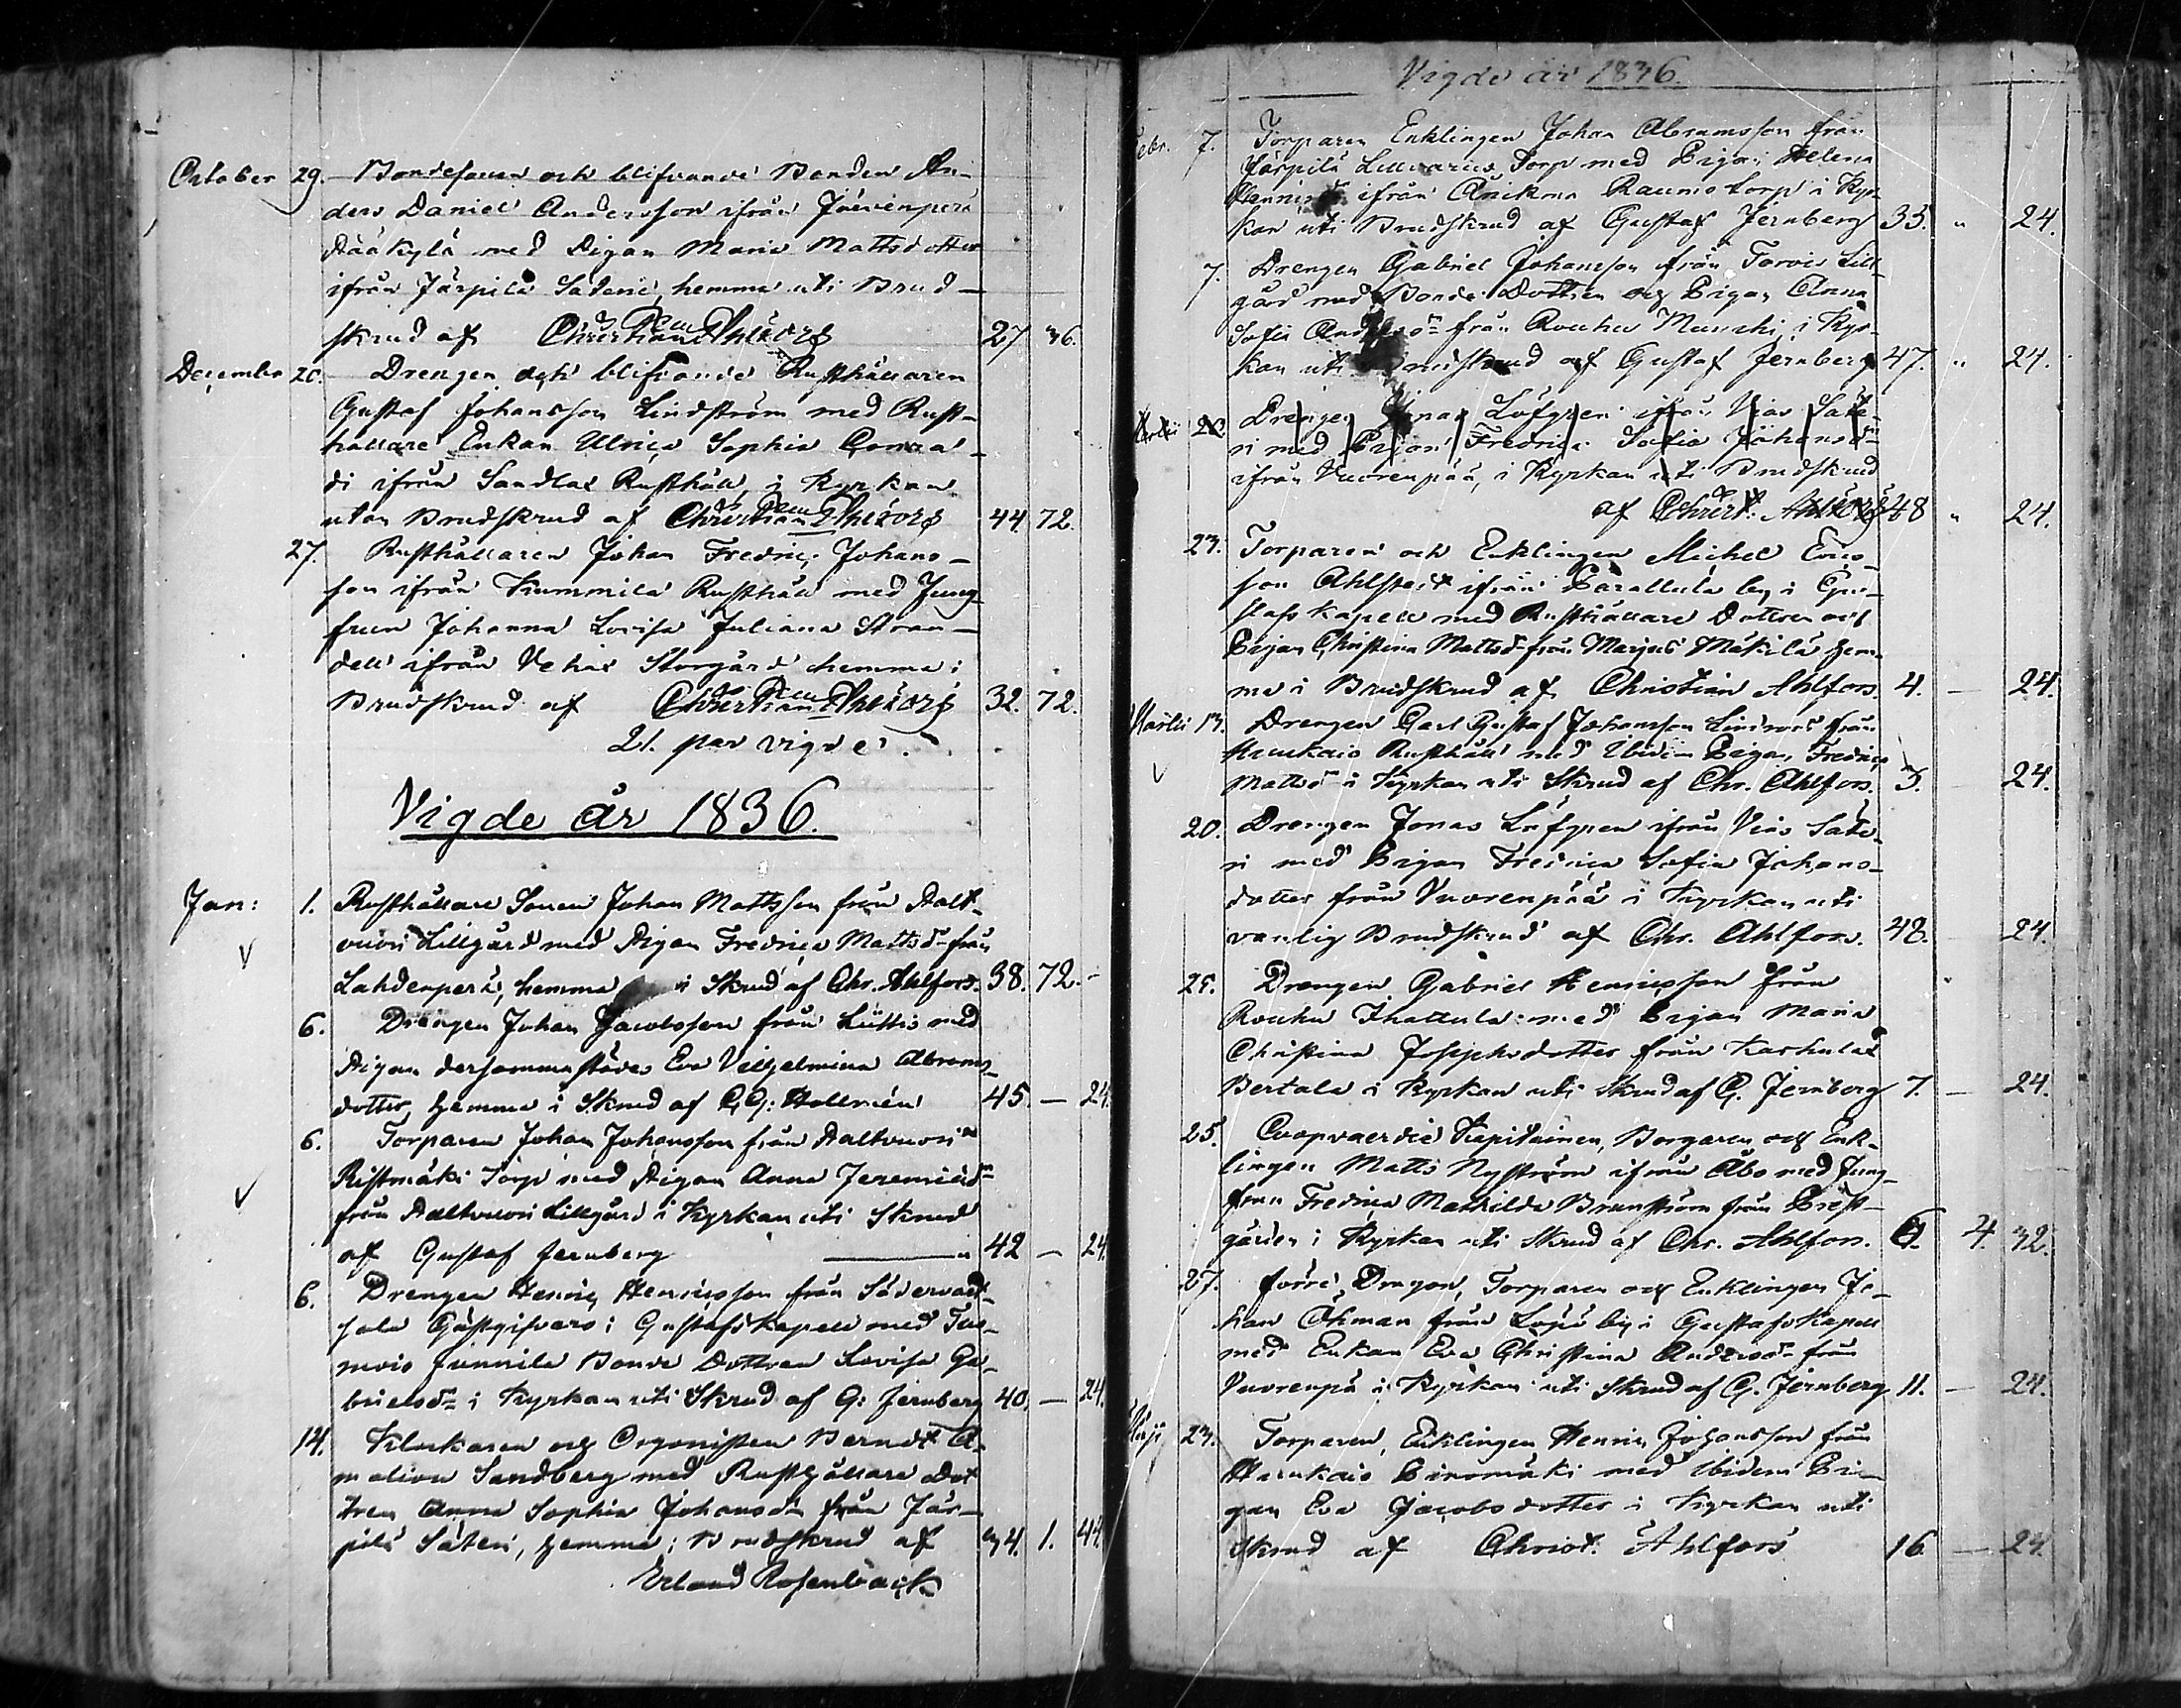 October 29. Bondesonen och blifvande Bonden An-
ders Daniel Andersson ifrån Järvenperä
Ääkylä med Pigan Maria Mattsdotter
ifrån Järpilä Säterie, hemma uti Brud-
skrud af Christian Ahlfors 27 36.
December 26. Drengen och blifvande Rusthållaren
Gustaf Johansson Lindström med Rust-
hållare Enkan Ulrica Sophia
di ifrån Sandlax Rusthåll, i Kyrkan
utan Brudskrud af Christian Ahlfors 44 72.
27. Rusthållaren Johan Fredric Johans-
son ifrån Kummila Rusthåll med Jung-
frun Johanna Lovisa Juliana Stran-
dell ifrån Vehas Storgård hemma i
Brudskrud af Christian Ahlfors 32. 72.
21. par vigde.
Vigde år 1836.
Jan: 1. Rusthållare Sonen Johan Mattsson från Aalt-
vuori Lillgård med Pigan Fredrica Mattsdr från
Lahdenperä, hemma i Skrud af Chr. Ahlfors. 38. 72.-
6. Drengen Johan Jacobsson från Lüttis med
Pigan dersammastädes Eva Vilhelmina Abrams-
dotter, hemma i Skrud af G.G: Hallvién 45. — 24.
6. Torparen Johan Johansson från Aaltvuori
Ristmäki Torp med Pigan Anna Jeremiædr
från Aaltvuori Lillgård i Kyrkan uti Skrud
af Gustaf Jernberg 42 — 24.
6. Drengen Henric Henricsson från Södervart-
sala Gästgifvars i Gustafs Kapell med Tur-
mois Junnila Bonde Dottren Lovisa Ga-
brielsdr i Kyrkan uti Skrud af G: Jernberg 40. — 24.
14. Klockaren och Organisten Berndt A-
malion Sandberg med Rusthållare Dot
tren Anna Sophia Johansdr från Jär-
pilä Säteri, hemma i Brudskrud af 4. 1. 44.
Erland Rosenback
Vigde år 1836.
Febr. 7. Torparen Enklingen Johan Abramsson från
Järpilä Lillvarius Torp med Pigan Helena
ifrån Anikma Raumo Torp i Kyr-
kan uti Brudskrud af Gustaf Jernberg 35. " 24.
7. Drengen Gabriel Johansson från Torvis Lill-
gård med Bonde Dottren och Pigan Anna
Sofia från Rouhu Murshi i Kyr-
kan uti Brudskrud af Gustaf Jernberg 47. " 24.
Martii 20 Drengen Jonas Löfgren ifrån Vias Säte-
ri med Pigan Fredrica Sofia Johansdr
ifrån Vuorenpää, i Kyrkan uti Brudskrud
af Christ: Ahlfors 48 " 24.
23. Torparen och Enklingen Michel Erics-
son Ahlstedt ifrån Parattula by i Gus-
tafs Kapell med Rusthållare Dottren och
Pigan Christina Mattsdr från Marjais Mäkilä hem-
ma i Brudskrud af Christian Ahlfors. 4. — 24.
Martii 13. Drengen Carl Gustaf Johansson Lindroos från
Haukais Rusthåll med Ibidem Pigan Fredrica
Mattsdr i Kyrkan uti Skrud af Chr. Ahlfors. 3. 24.
20. Drengen Jonas Löfgren ifrån Vias Säte-
ri med Pigan Fredrica Sofia Johans-
dotter från Vuorenpää i Kyrkan uti
vanlig Brudskrud af Chr. Ahlfors. 48. 24.
25. Drengen Gabriel Henricsson från
Rouhu Ihattula med Pigan Maria
Christina Josephsdotter från Karhula
Bertala i Kyrkan uti Skrud af G. Jernberg 7. — 24.
25. Coopvaerdie Kapitainen, Borgaren och Enk-
lingen Matts Nyström ifrån Åbo med Jung-
frun Fredrica Mathilda Brunström från Prest-
gården i Kyrkan uti Skrud af Chr. Ahlfors. 6. 4. 32.
27. förre Dragon, Torparen och Enklingen Jo-
han Öhman från Lopö by i Gustafs Kapell
med Enkan Eva Christina Andersdr från
Vuorenpä i Kyrkan uti Skrud af G. Jernberg 11. — 24.
Maji 23. Torparen, Enklingen Henric Johansson från
Haukais Piromäki med Ibidem Pi-
gan Eva Jacobsdotter i Kyrkan uti
Skrud af Christ. Ahlfors 16 — 24.